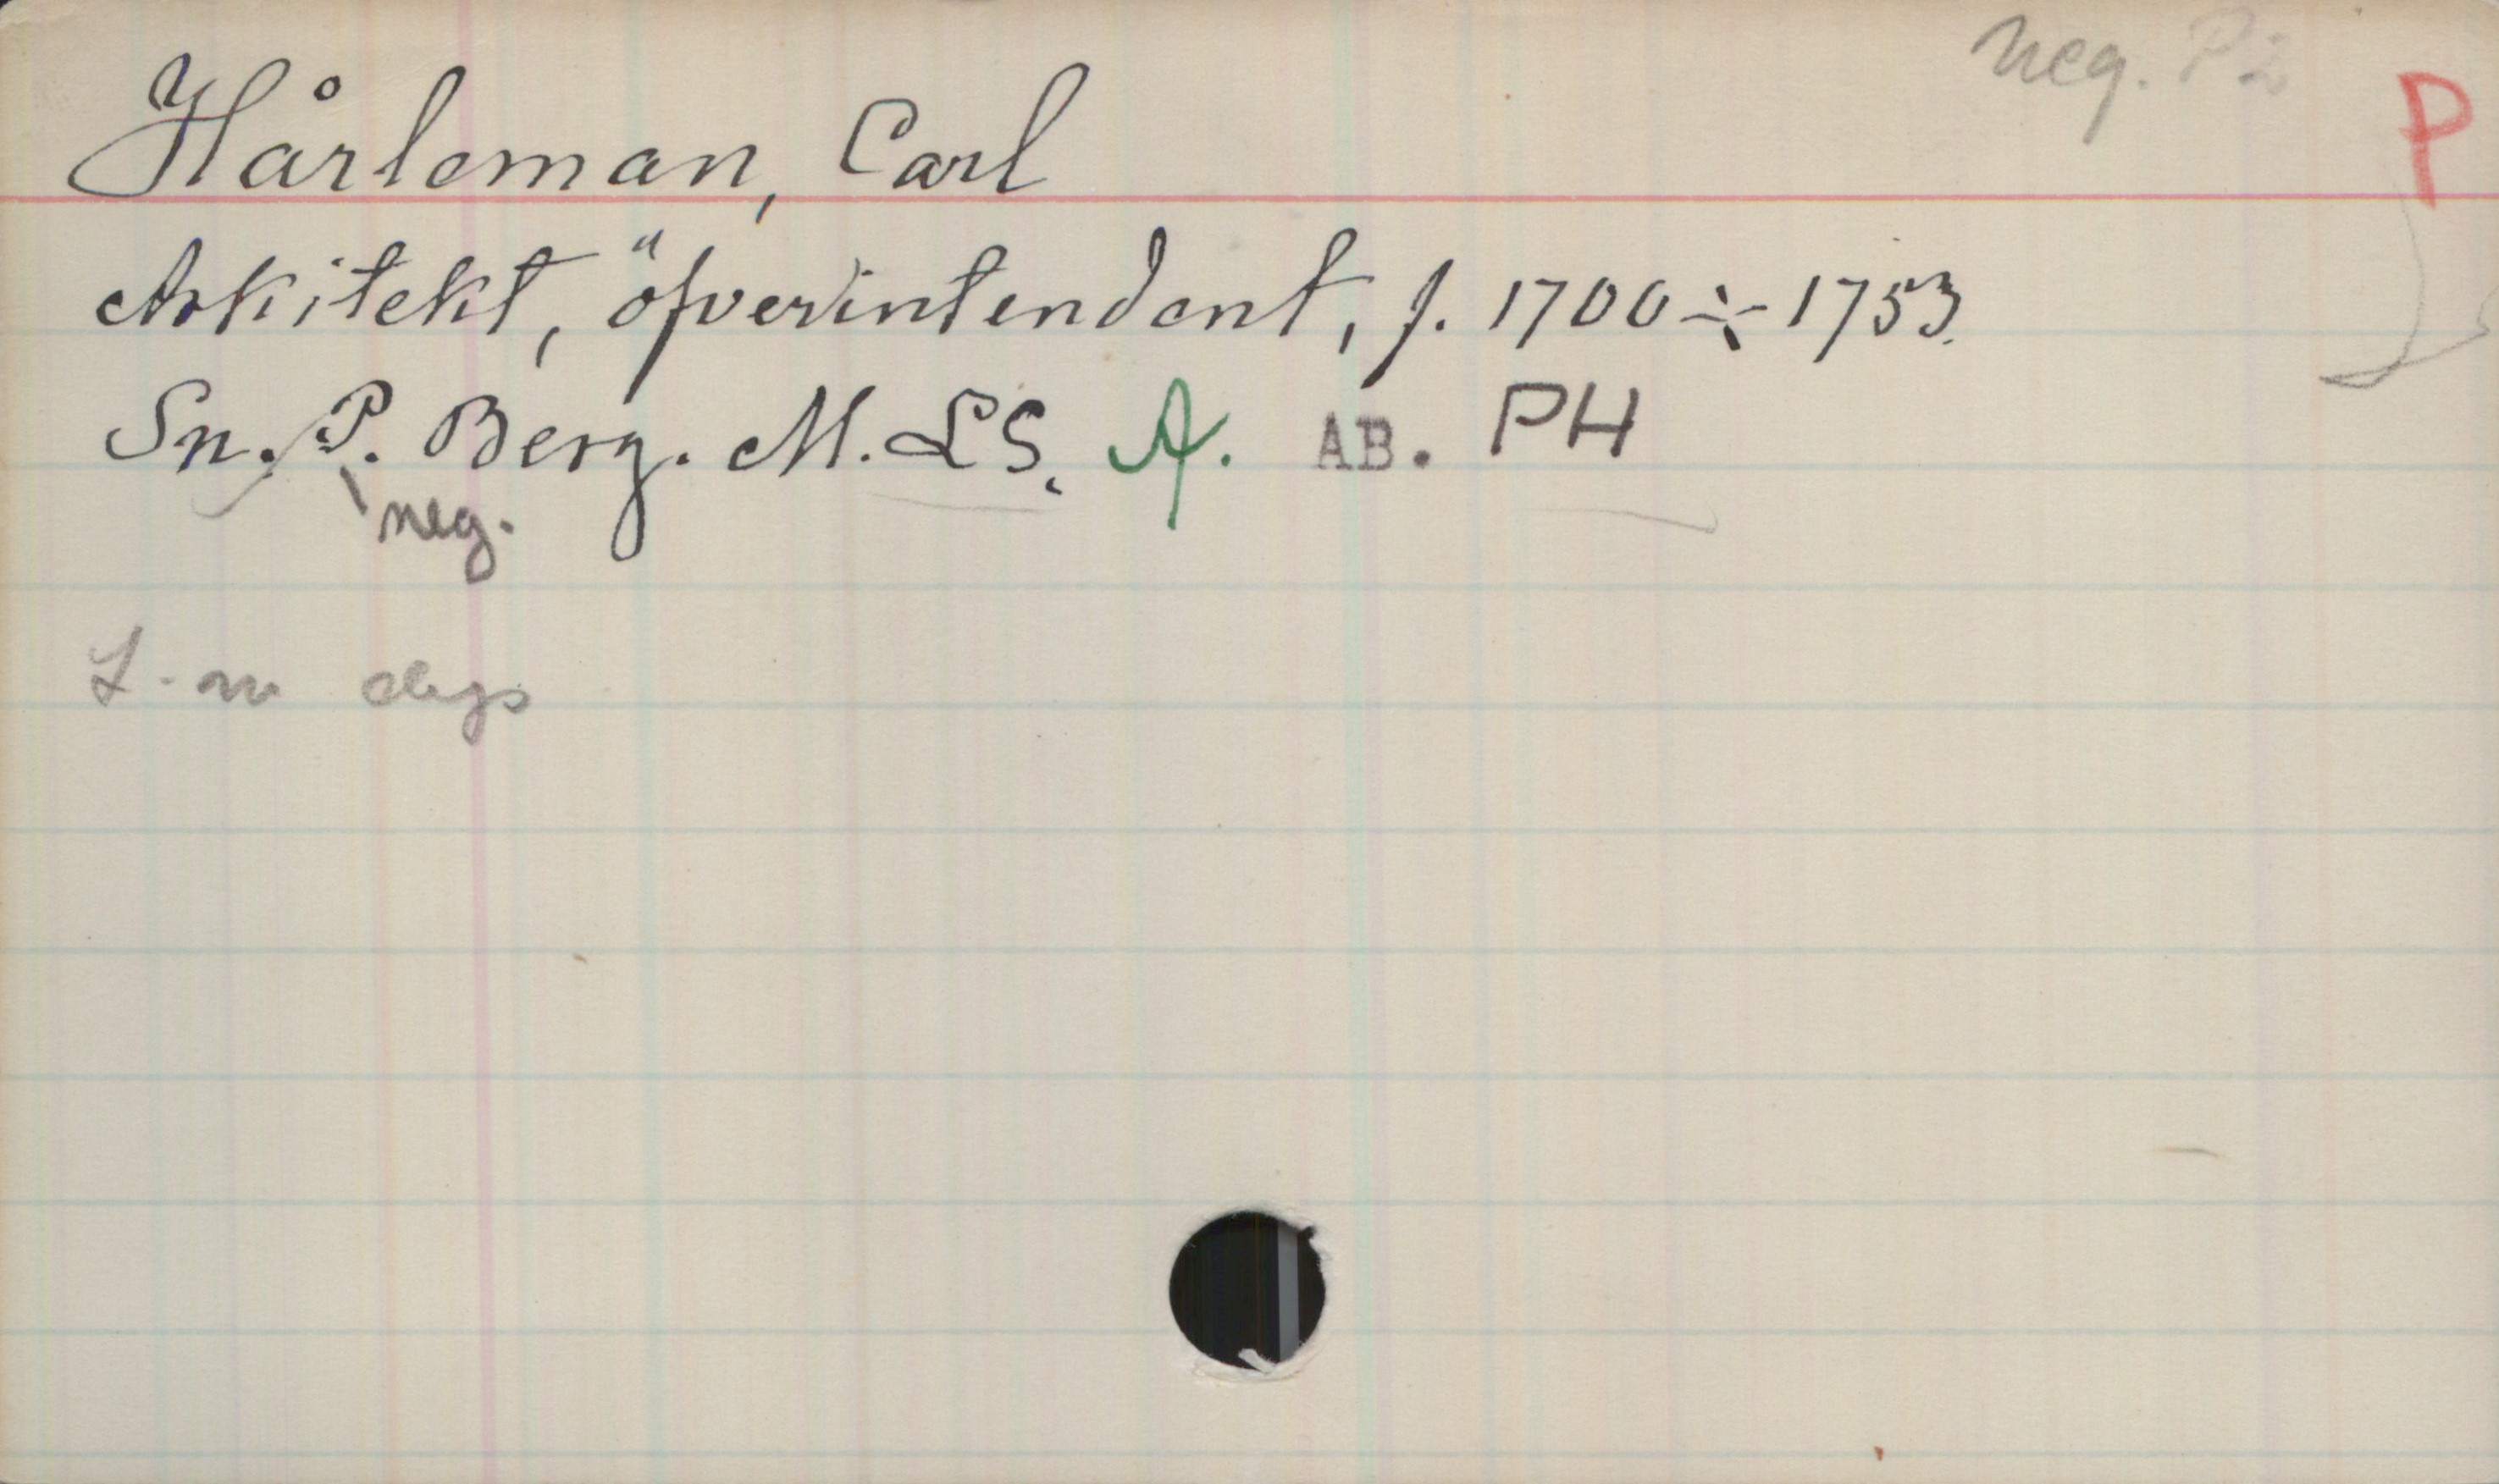 neg. P2
P
Hårleman, Carl
Arkitekt, öfverintendent, f. 1700 ÷ 1753.
Sn. P. Berg. M. LS. A. AB. PH
neg.